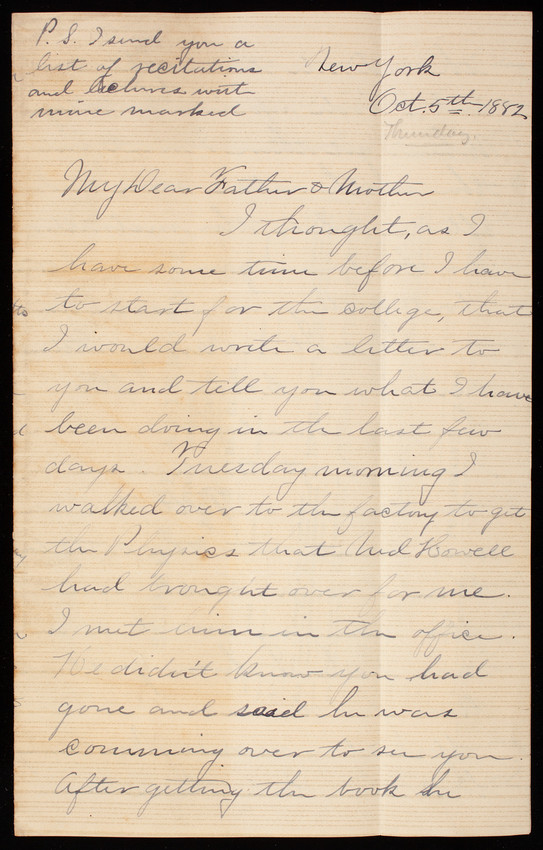 P. S. I send you a
list of recitations
and lectures with
mine marked
New York
Oct. 5th 1882
Thursday.
My Dear Father & Mother
I thought, as I
have some time before I have
to start for the college, that
I would write a letter to
you and tell you what I have
been doing in the last few
days. Tuesday morning I
walked over to the factory to get
the Physics that Ned Howell
had brought over for me.
I met him in the office.
He didn't know you had
gone and said he was
comming over to see you.
After getting the book he